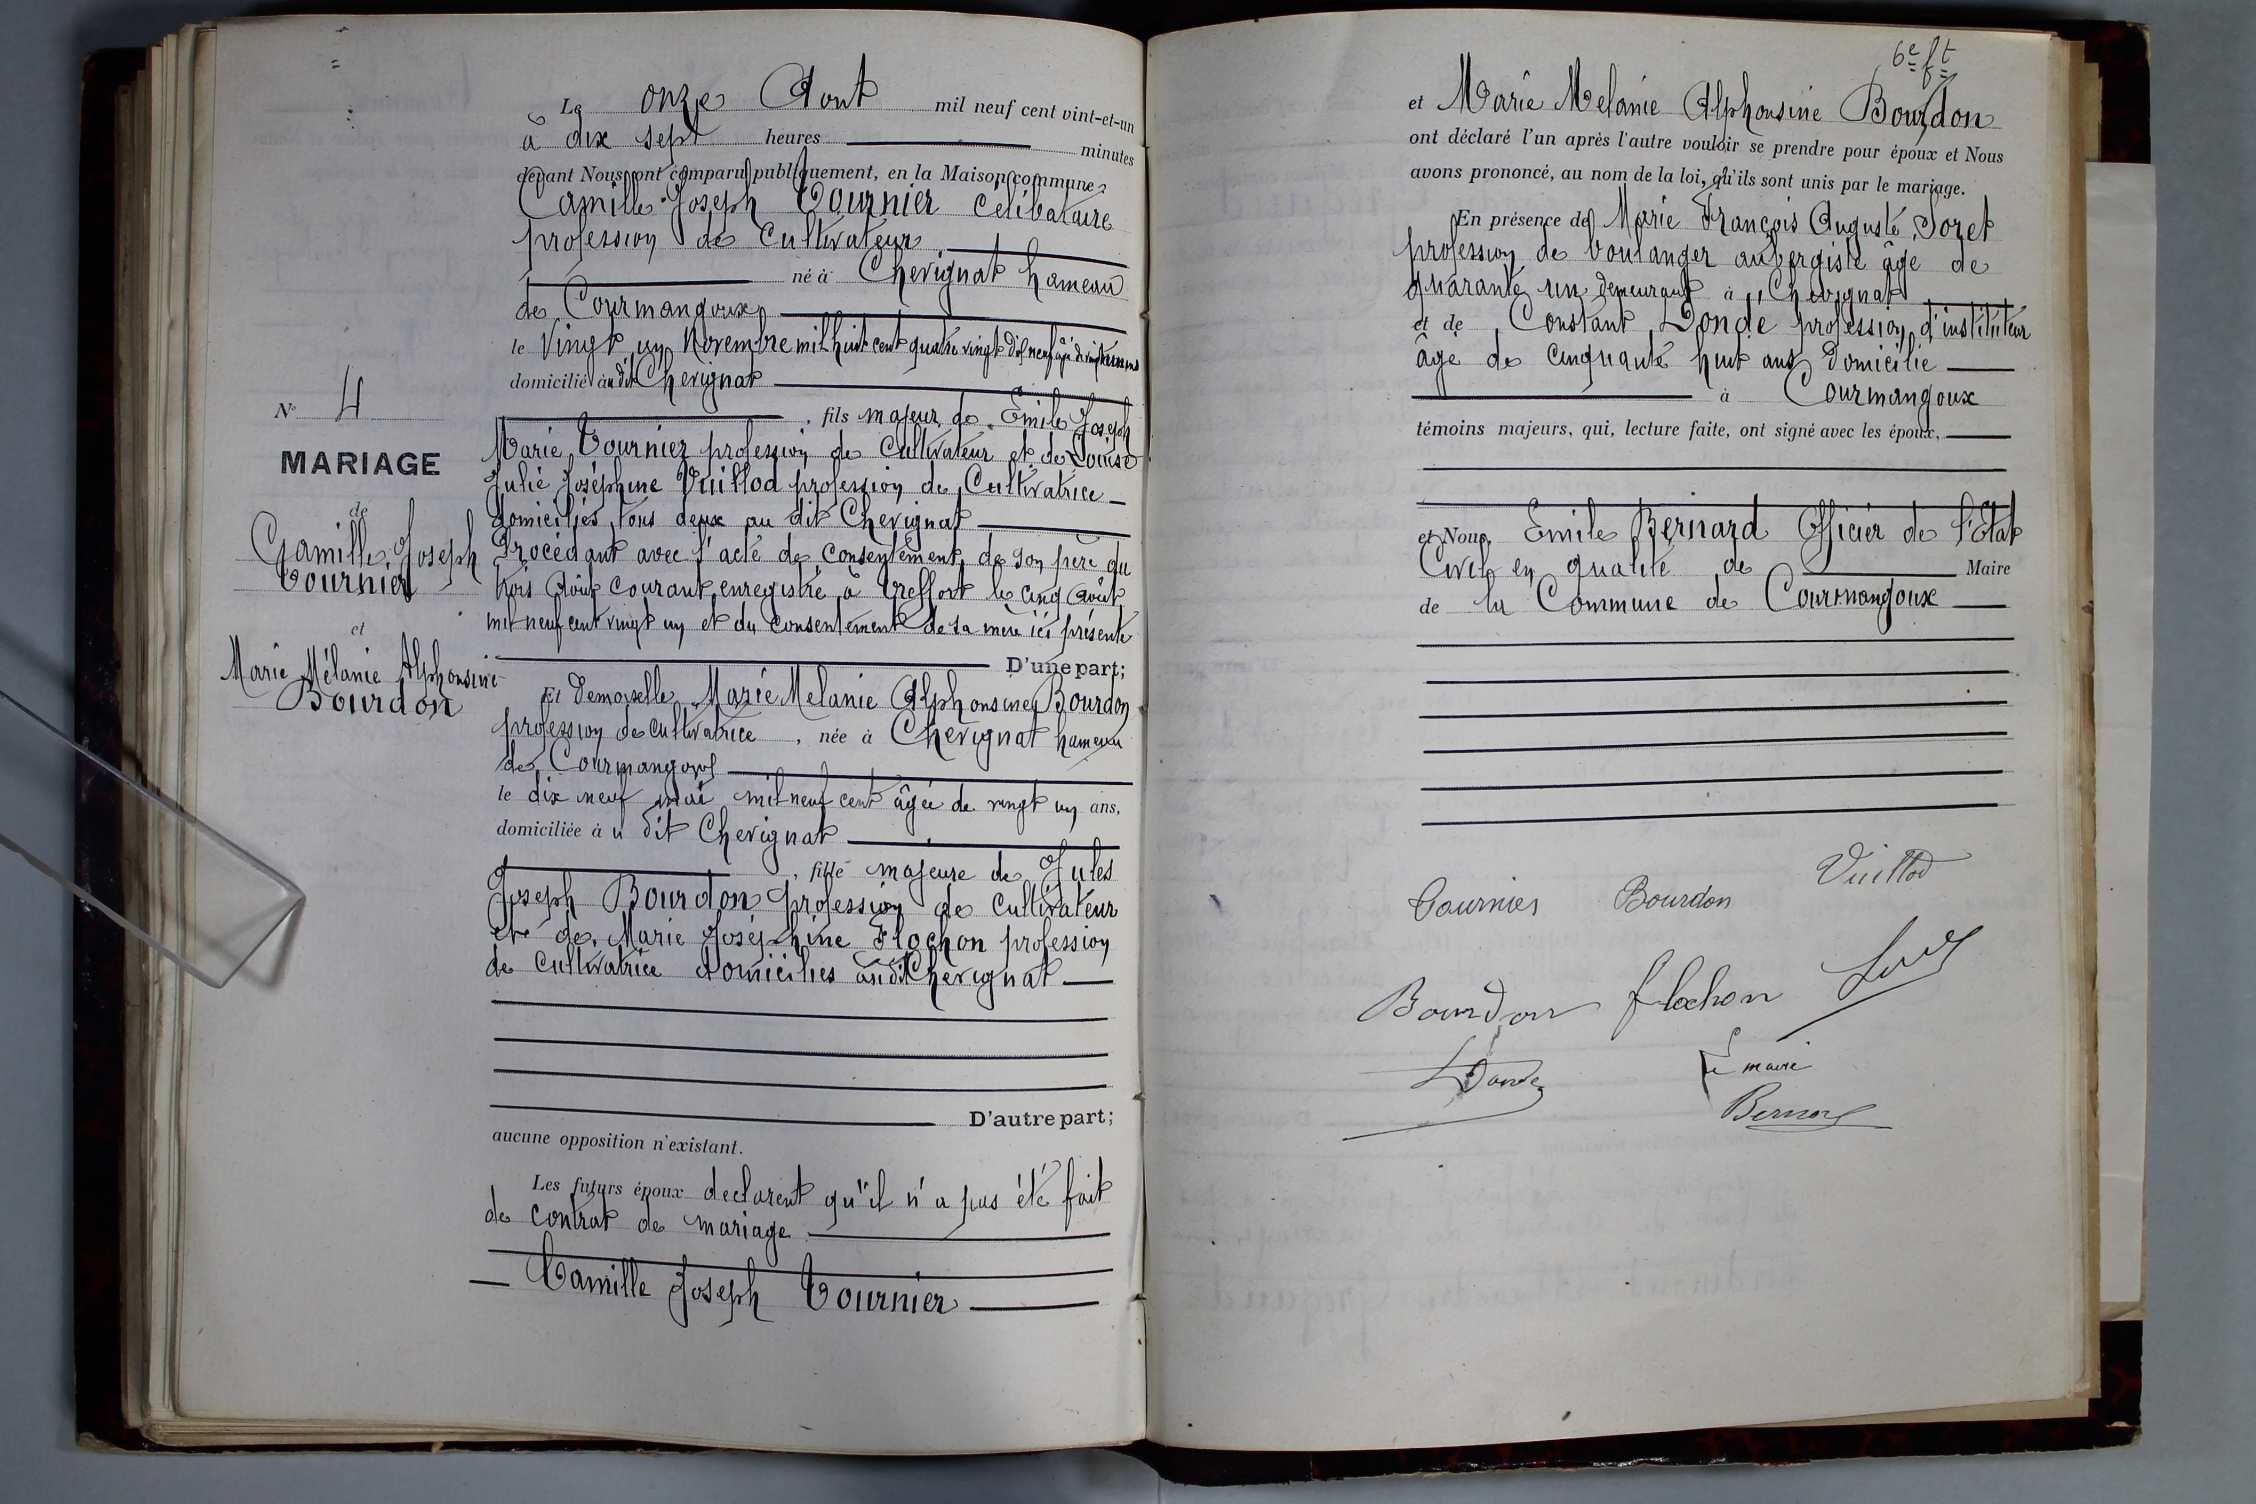 Le onze Aout mil neuf cent vint-et-un
à dix sept heures minutes
devant Nous ont comparu publiquement, en la Maison commune
Camille Joseph Tournier célibataire
profession de Cultivateur
né à Chevignat hameau
de Courmangoux
le Vingt un Novembre mil huit cent quatre vingt dix neuf âgé de vingt un ans
domicilié au dit Chevignat
, fils majeur de Emile Joseph
Marie Tournier profession de Cultivateur et de Louise
Julie Joséphine Vuillod profession de Cultivatrice
domiciliés tous deux au dit Chevignat
Procédant avec l'acte de consentement de son père du
trois Août courant enregistré à Treffort le cinq Août
mil neuf cent vingt un et du consentement de sa mère ici présente
D'une part;
N° 4
MARIAGE
de
Camille Joseph
Tournier
et
Marie Mélanie Alphonsine
Bourdon
Et Demoiselle Marie Melanie Alphonsine Bourdon
profession de cultivatrice , née à Chevignat hameau
de Courmangoux
le dix neuf mai mil neuf cent âgée de vingt un ans,
domiciliée à u dit Chevignat
, fille majeure de Jules
Joseph Bourdon profession de cultivateur
et de Marie Joséphine Flochon profession
de cultivatrice domiciliés au dit Chevignat
D'autre part;
aucune opposition n'existant.
Les futurs époux declarent qu'il n'a pas été fait
de contrat de mariage
Camille Joseph Tournier
6e ft
et Marie Melanie Alphonsine Bourdon
ont déclaré l'un après l'autre vouloir se prendre pour époux et Nous
avons prononcé, au nom de la loi, qu'ils sont unis par le mariage.
En présence de Marie François Auguste Soret
profession de boulanger aubergiste âgé de
quarante un demeurant à Chevignat
et de Constant Donde profession d'instituteur
âgé de cinquante huit ans domicilié
à Courmangoux
témoins majeurs, qui, lecture faite, ont signé avec les époux,
et Nous, Emile Bernard Officier de l'Etat
Civil en qualité de Maire
de la Commune de Courmangoux
Tournier Bourdon Vuillod
Bourdon Flochon
Donde Le maire
Bernard